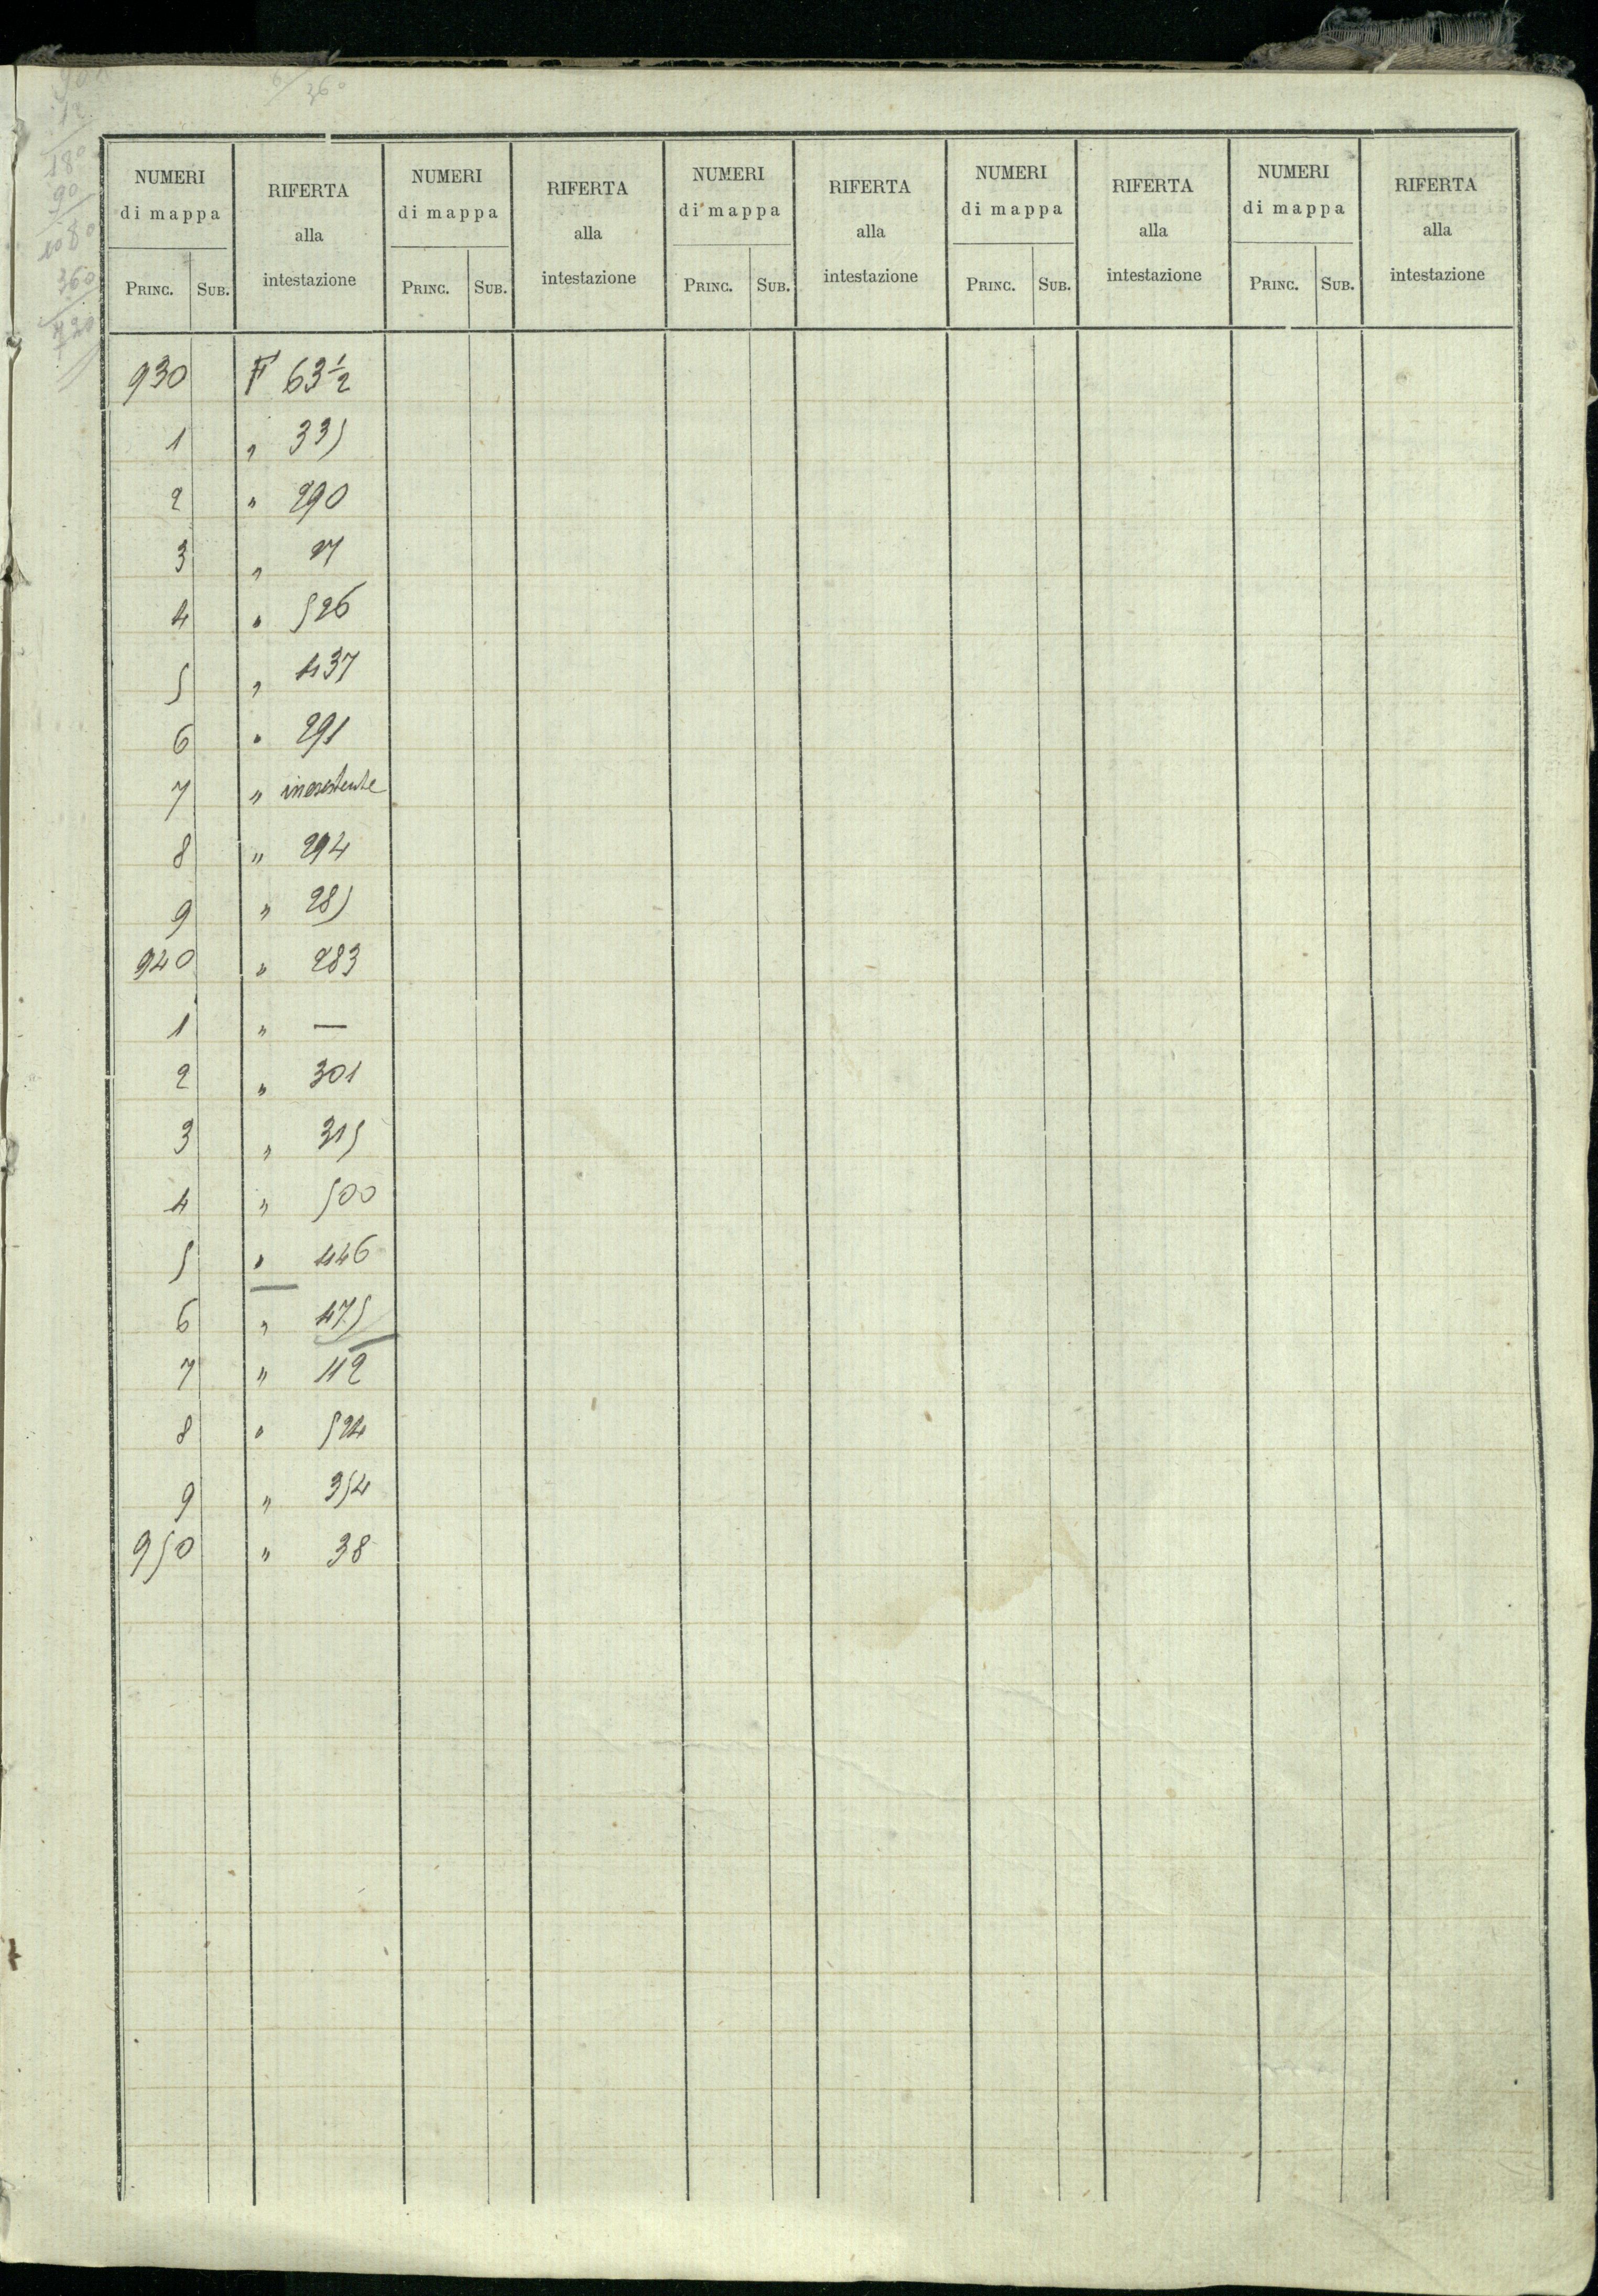 NUMERI di mappa RIFERTA alla intestazione NUMERI di mappa RIFERTA alla intestazione NUMERI di mappa RIFERTA alla intestazione NUMERI di mappa RIFERTA alla intestazione NUMERI di mappa RIFERTA alla intestazione
PRINC. SUB. PRINC. SUB. PRINC. SUB. PRINC. SUB. PRINC. SUB.
930 F 63 1/2
1 " 335
2 " 290
3 " 27
4 " 526
5 " 437
6 " 291
7 " inesistente
8 " 294
9 " 285
940 " 283
1 " —
2 " 301
3 " 315
4 " 500
5 " 446
6 " 475
7 " 112
8 " 524
9 " 354
950 " 38
360
180
90
1080
360
720